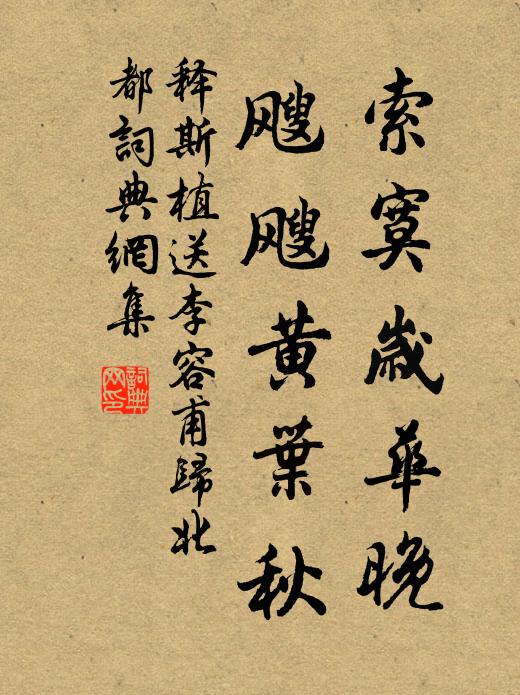 索寞歲華晚
颼颼黃葉秋
释斯植送李容甫歸北
都詞典網集
詞典網印